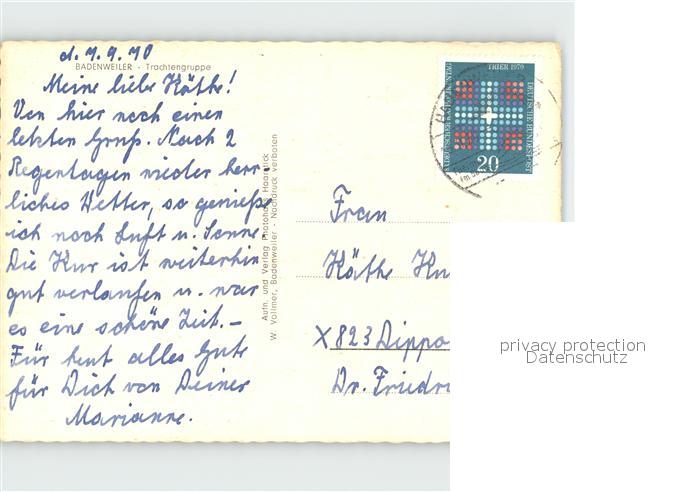 d. 7.9.70
BADENWEILER - Trachtengruppe
Meine liebe Käthe!
Von hier noch einen
letzten Gruß. Nach 2
Regentagen wieder herr-
liches Wetter, so genieße
ich noch Luft u. Sonne.
Die Kur ist weiterhin
gut verlaufen u. war
es eine schöne Zeit.-
Für heut alles Gute
für Dich von Deiner
Marianne.
Aufn. und Verlag Photohaus
W. Vollmer, Badenweiler - Nachdruck verboten
TRIER 1970
DEUTSCHER KATHOLIKENTAG
DEUTSCHE BUNDESPOST
20
Frau
Käthe
X 823 Dippo
Dr. Friedri
privacy protection
Datenschutz